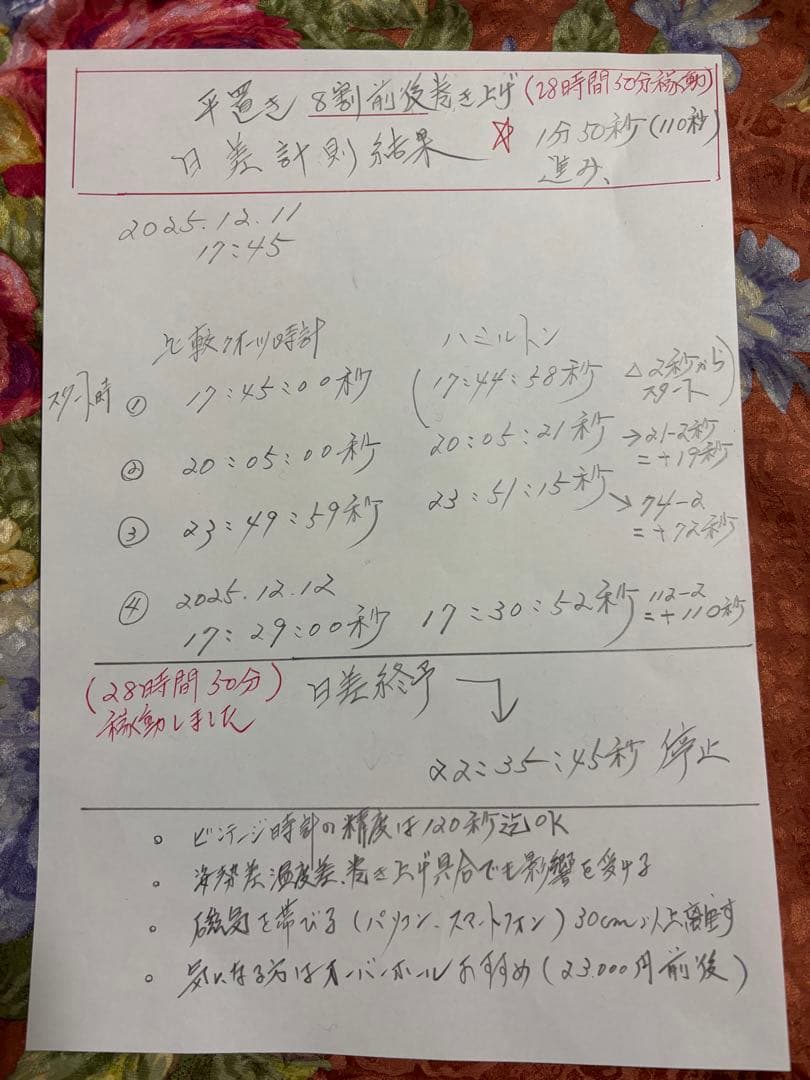 平置き 8割前後巻き上げ (28時間50分稼動)
日差計則結果 ☆ 1分50秒(110秒)
進み、
2025.12.11
17:45
比較クオーツ時計 ハミルトン
スタート時 ① 17:45:00秒 (17:44:58秒 △2秒からスタート)
② 20:05:00秒 20:05:21秒 →21-2秒
=+19秒
③ 23:49:59秒 23:51:15秒 →74-2
=+72秒
④ 2025.12.12
17:29:00秒 17:30:52秒 112-2
=+110秒
(28時間50分)
稼動しました
日差終予 →
22:35:45秒 停止
○ ビンテージ時計の精度は120秒迄OK
○ 姿勢差、温度差、巻き上げ具合でも影響を受ける
○ 磁気を帯びる(パソコン、スマートフォン)30cm以上離す
○ 気になる方はオーバーホールおすすめ(23.000円前後)